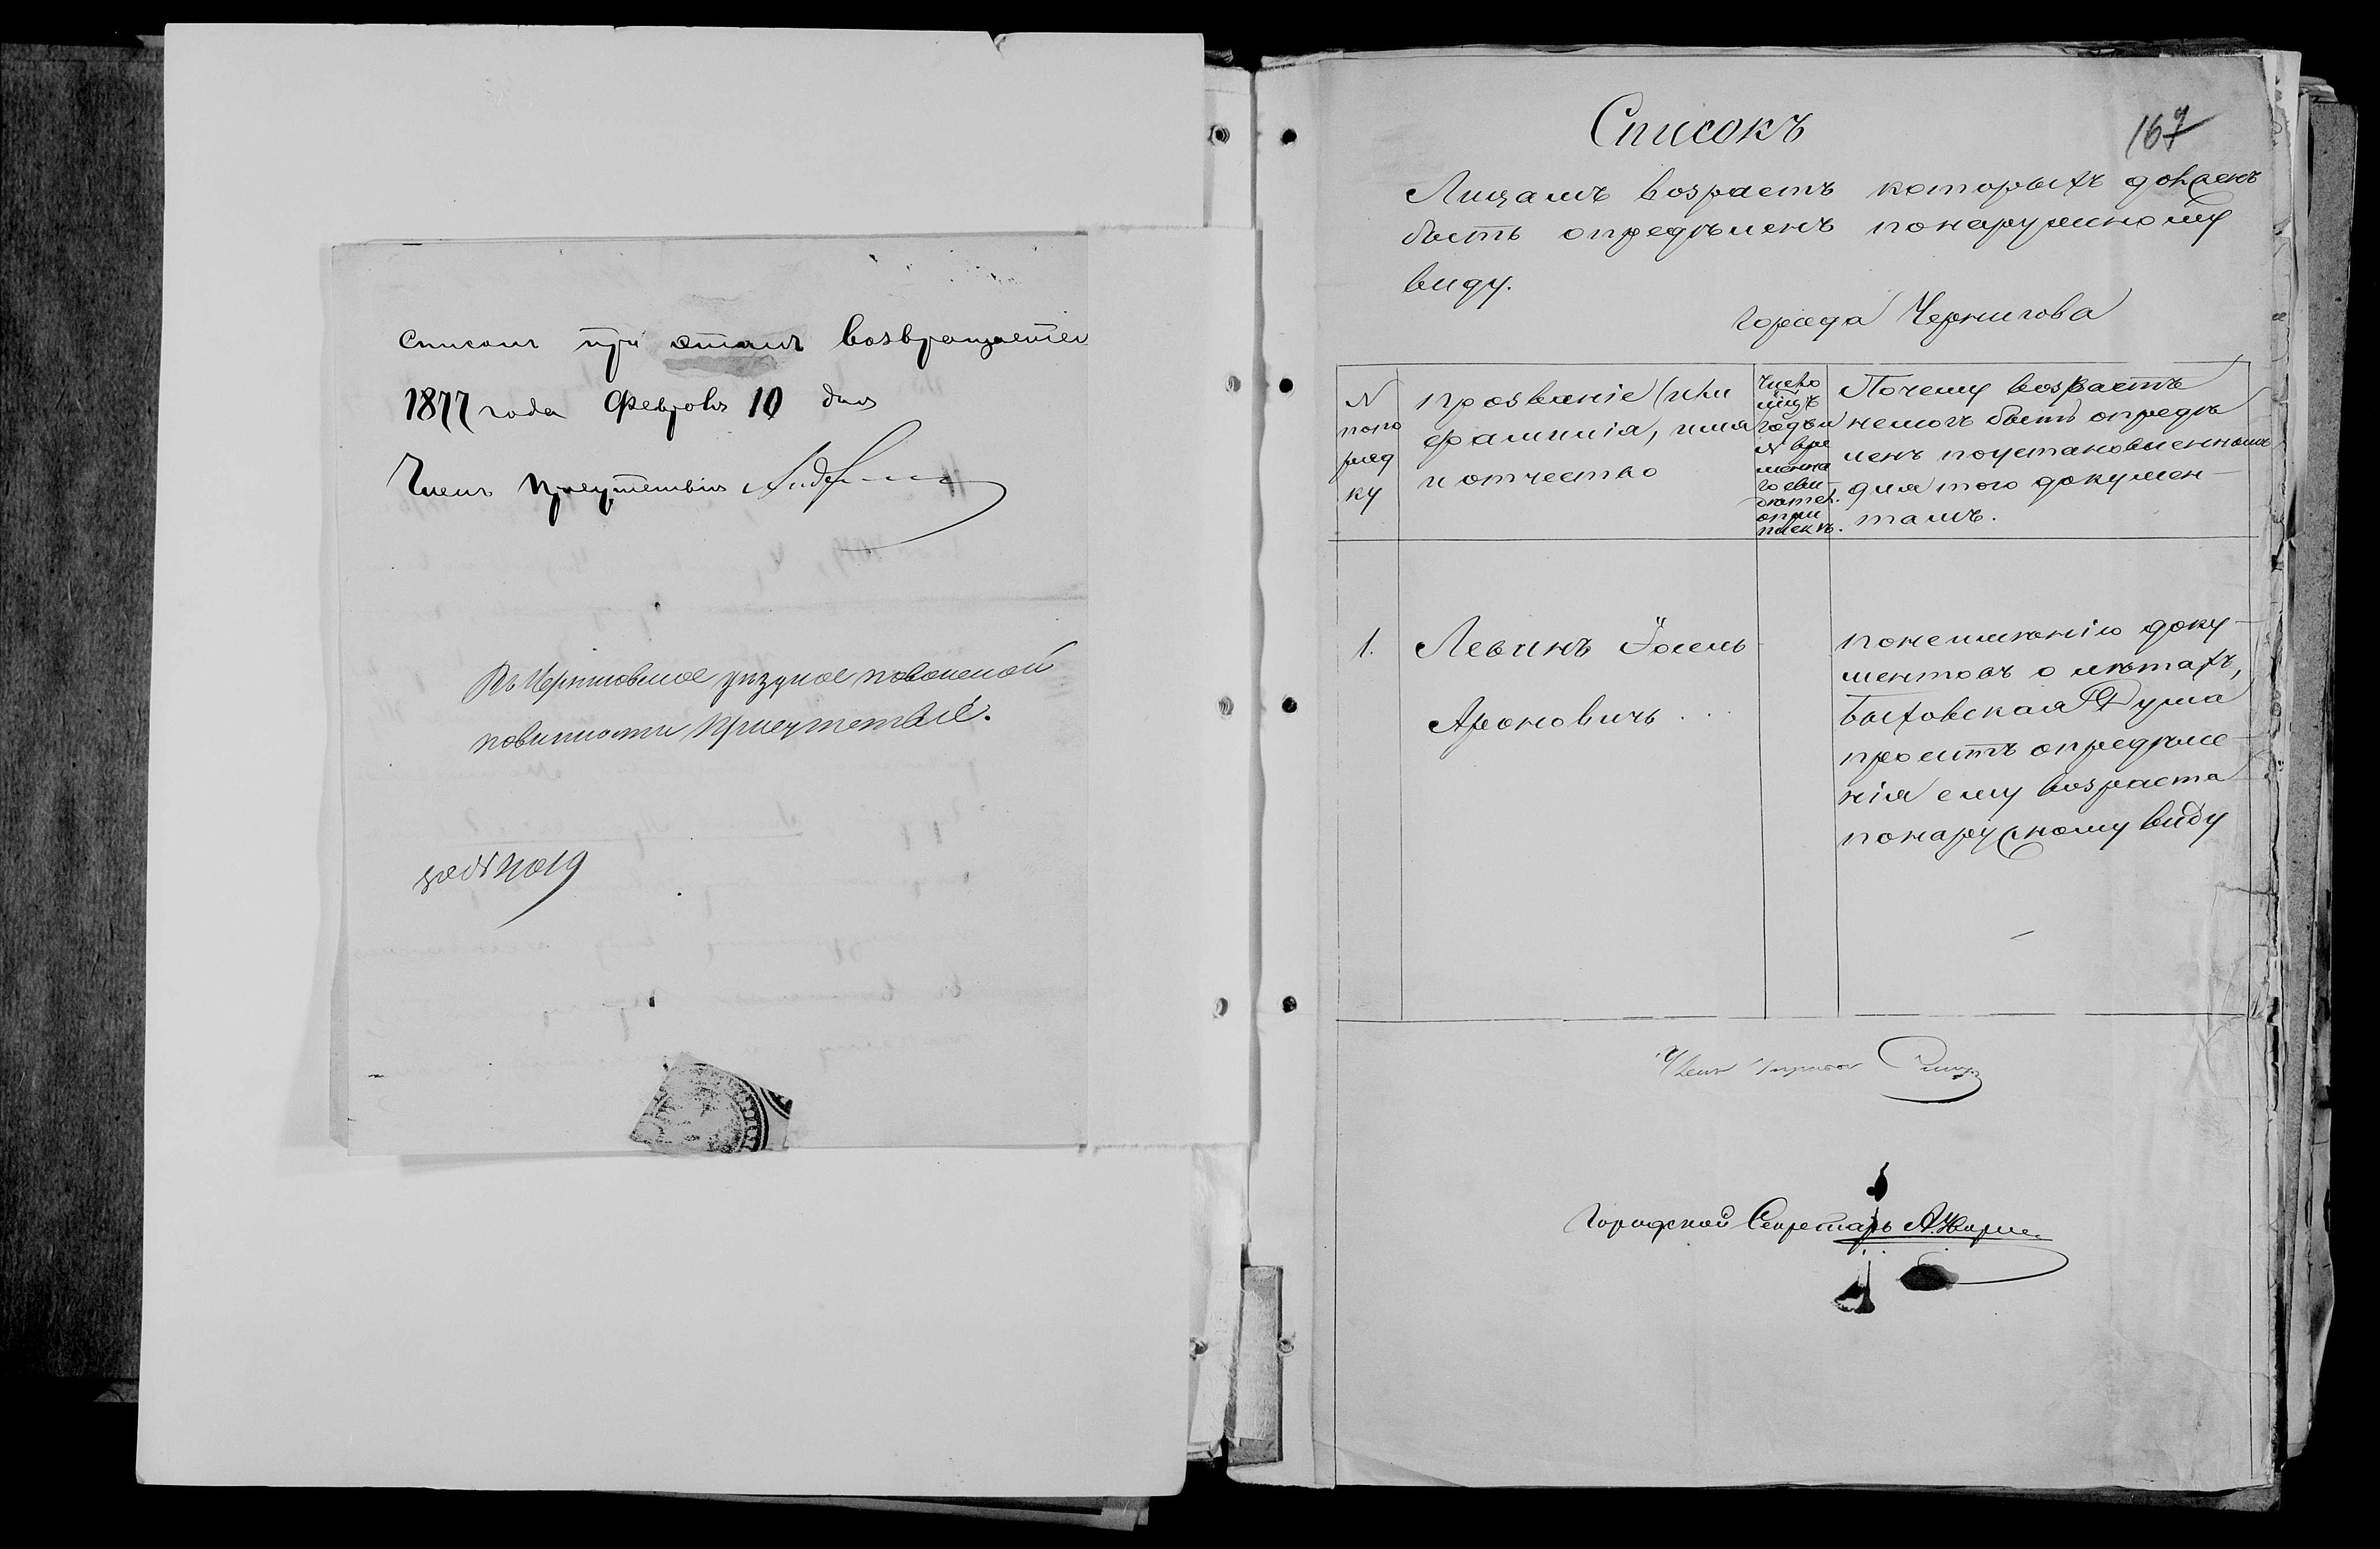 Списокъ при этомъ возвращается
1877 года Февраля 10 дня
Членъ Присутствія
Въ Черниговское уѣздное по воинской
повинности Присутствіе.
167
Списокъ
Лицамъ возрастъ которыхъ долженъ
быть опредѣленъ понаружному
виду.
города Чернигова
N
попо
ряд
ку
прозваніе (или
фамилія, имя
и отчество
Число
лицъ
годъ и
N вре
менна
го сви
дѣтел.
о при
пискѣ.
Почему возрастъ
немогъ быть опредѣ
ленъ поустановленнымъ
для того докумен-
тамъ.
1.
Левинъ Іосель
Ароновичъ . . .
понеимѣнію доку-
ментовъ о лѣтахъ,
Быховская Дума
проситъ опредѣле-
нія ему возраста
понаружному виду
Членъ Управы
Городской Секретарь А.